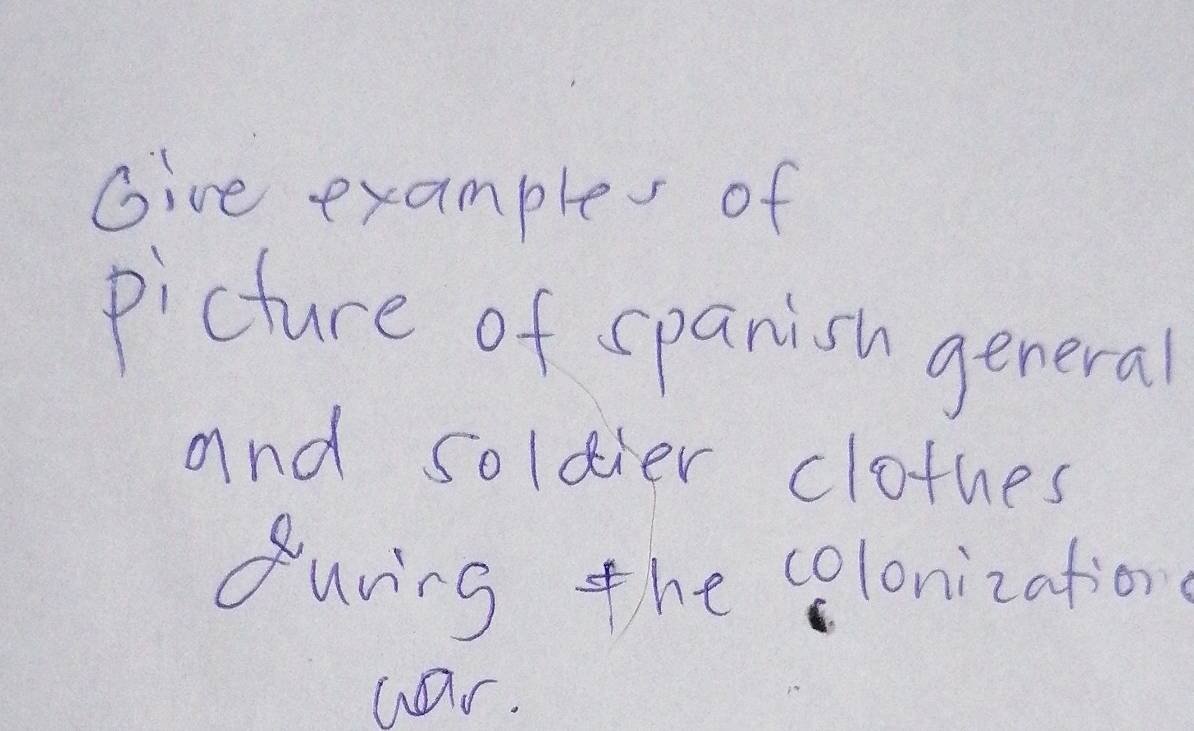 Give examples of
picture of spanish general
and soldier clothes
during the colonization
war.